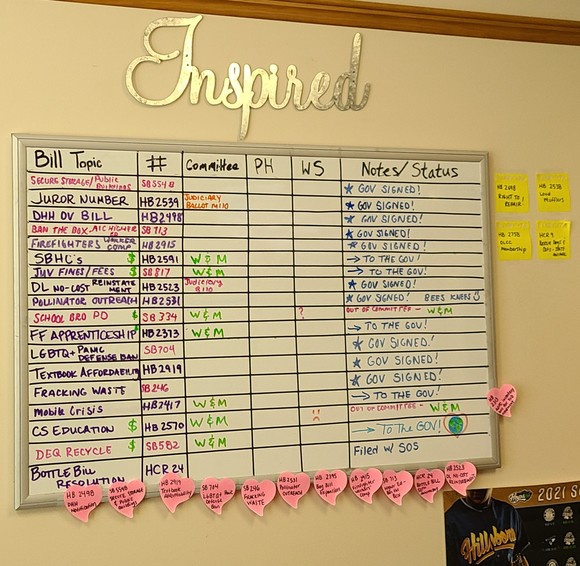 Inspired
Bill Topic # Committee PH WS Notes/Status
SECURE STORAGE/Public Buildings SB 554 B ★ GOV SIGNED!
JUROR NUMBER HB 2539 JUDICIARY BALLOT M110 ★ GOV SIGNED!
DHH OV BILL HB 2498 ★ GOV SIGNED!
BAN THE BOX-AIC HIGHER ED SB 713 ★ GOV SIGNED!
FIREFIGHTERS WORKERS COMP HB 2915 ★ GOV SIGNED!
SBHC's $ HB 2591 W & M → TO THE GOV!
JUV FINES/FEES $ SB 817 W & M → TO THE GOV!
DL NO-COST REINSTATEMENT HB 2523 Judiciary B110 ★ GOV SIGNED!
POLLINATOR OUTREACH HB 2531 ★ GOV SIGNED! BEES KNEES
SCHOOL BRD PD $ SB 334 W & M ? OUT OF COMMITTEE - W&M
FF APPRENTICESHIP HB 2373 W & M → TO THE GOV!
LGBTQ+ PANIC DEFENSE BAN SB 704 ★ GOV SIGNED!
TEXTBOOK AFFORDABILITY HB 2919 ★ GOV SIGNED!
FRACKING WASTE SB 246 ★ GOV SIGNED!
Mobile Crisis HB 2417 W & M → TO THE GOV!
CS EDUCATION $ HB 2570 W & M OUT OF COMMITTEE - W&M
DEQ RECYCLE $ SB 582 W & M → TO THE GOV!
BOTTLE BILL RESOLUTION HCR 24 Filed w/ SOS
HB 2698
RIGHT TO REPAIR
HB 2538
Loud Mufflers
HB 2758
OLCC
Membership
HCR 9
HB 2498
DHH
SB 554
SECURE STORAGE
& PUBLIC
BUILDINGS
HB 2919
Textbook
Affordability
SB 704
LGBTQ+ Panic
Defense
Ban
SB 246
FRACKING
WASTE
HB 2531
POLLINATOR
OUTREACH
HB 2915
SB 713
HCR 24
BOTTLE BILL
HB 2523
DL NO-COST
Hops
2021 S
Hillsboro